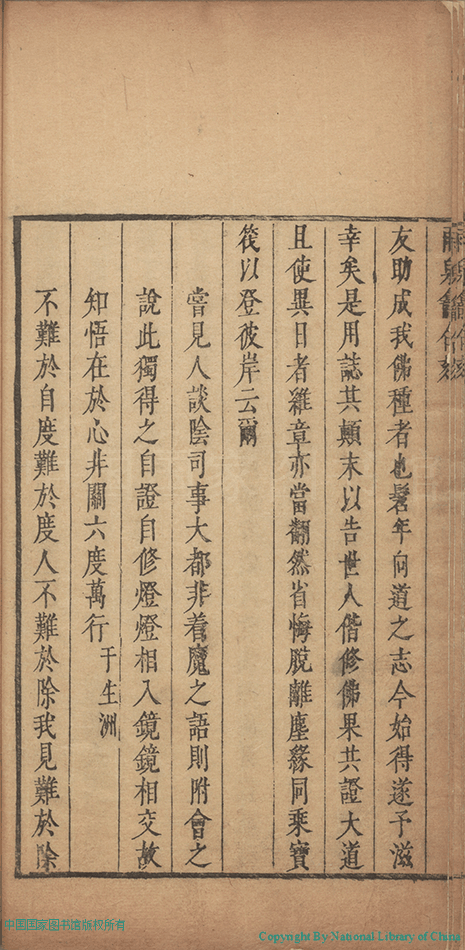 友助成我佛種者也髫年向道之志今始得遂予滋
幸矣是用誌其顛末以告世人偕修佛果共證大道
且使異日者雞章亦當翻然省悔脫離塵緣同乘寶
筏以登彼岸云爾
嘗見人談陰司事大都非着魔之語則附會之
說此獨得之自證自修燈燈相入鏡鏡相交故
知悟在於心非關六度萬行
于生洲
不難於自度難於度人不難於除我見難於除
中国国家图书馆版权所有
Copyright By National Library of China